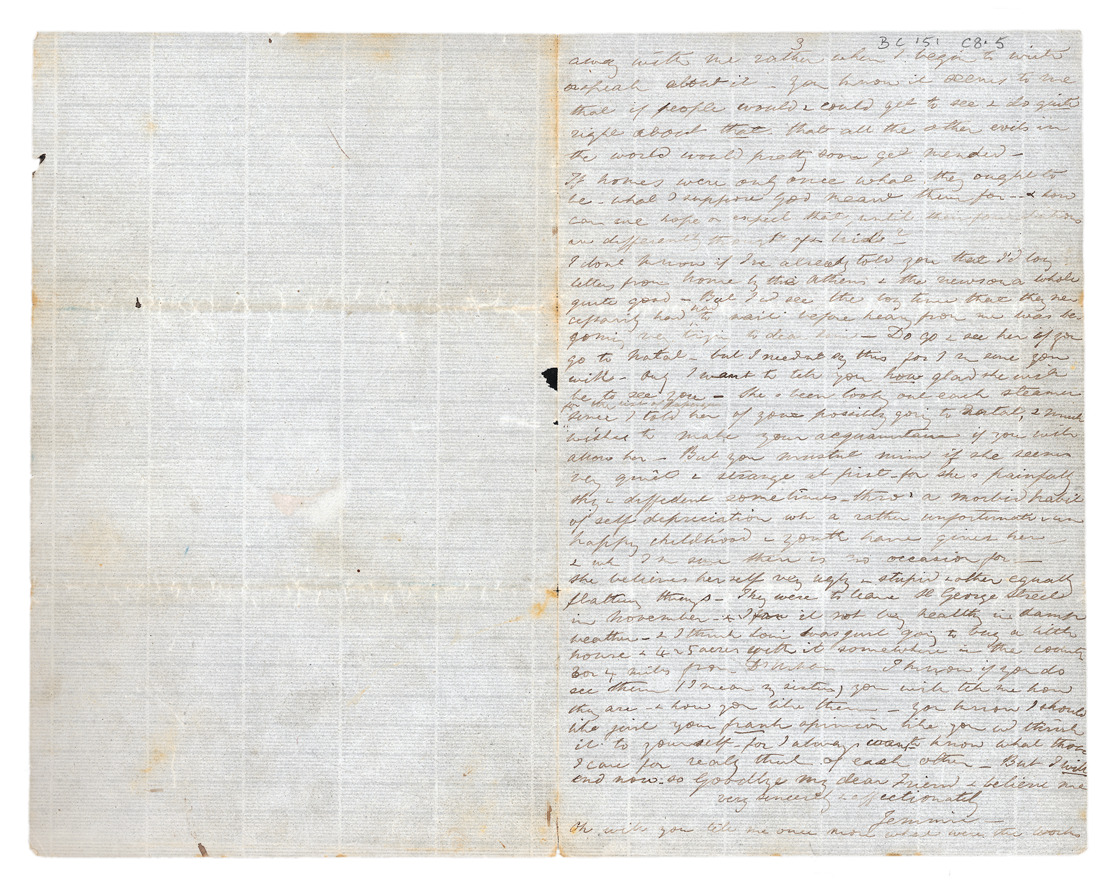 3
BC 151 C8.5
away with me rather when I begin to write
or speak about it - You know it seems to me
that if people would & could get to see & do quite
right about that that all the other evils in
the world would pretty soon get mended -
If homes were only once what they ought to
be - what I suppose God meant them for - & how
can we hope or expect that until their foundations
are differently thought of &
I dont know if I've already told you that I'd long
letters from home by the Athens & the news on a whole
quite good - But I'd see the long time that they ne
cessarily had had to wait before hearing from me was be
going very to dear - Do go & see her if you
go to Natal - but I needn't say this for I'm sure you
will - Only I want to tell you how glad she will
be to see you - She's been looking out each steamer
since I told her of your possibly going to Natal, & much
wishes to make your acquaintance if you will
allow her - But you mustnt mind if she seems
very quiet & strange at first - for she's painfully
shy & diffident sometimes - thro' a morbid habit
of self depreciation wh a rather unfortunate & un
happy childhood & youth have given her -
& wh I'm sure there is no occasion for -
She believes herself very ugly & stupid & other equally
flattering things - They were to leave St George Street
in November - & I fear it not very healthy in damp
weather - & I think Loui was quite going to buy a little
house & 4 or 5 acres with it somewhere in the country
3 or 4 miles from D'Urban - I know if you do
see them (I mean my sisters) you will tell me how
they are - & how you like them - You know I should
like just your frank opinion like you'd think
it to yourself - for I always want to know what those
I care for really think of each other - But I will
end now - so Goodbye my dear Friend & believe me
very sincerely & affectionately
Jemmie -
Oh, will you tell me once more what were the words